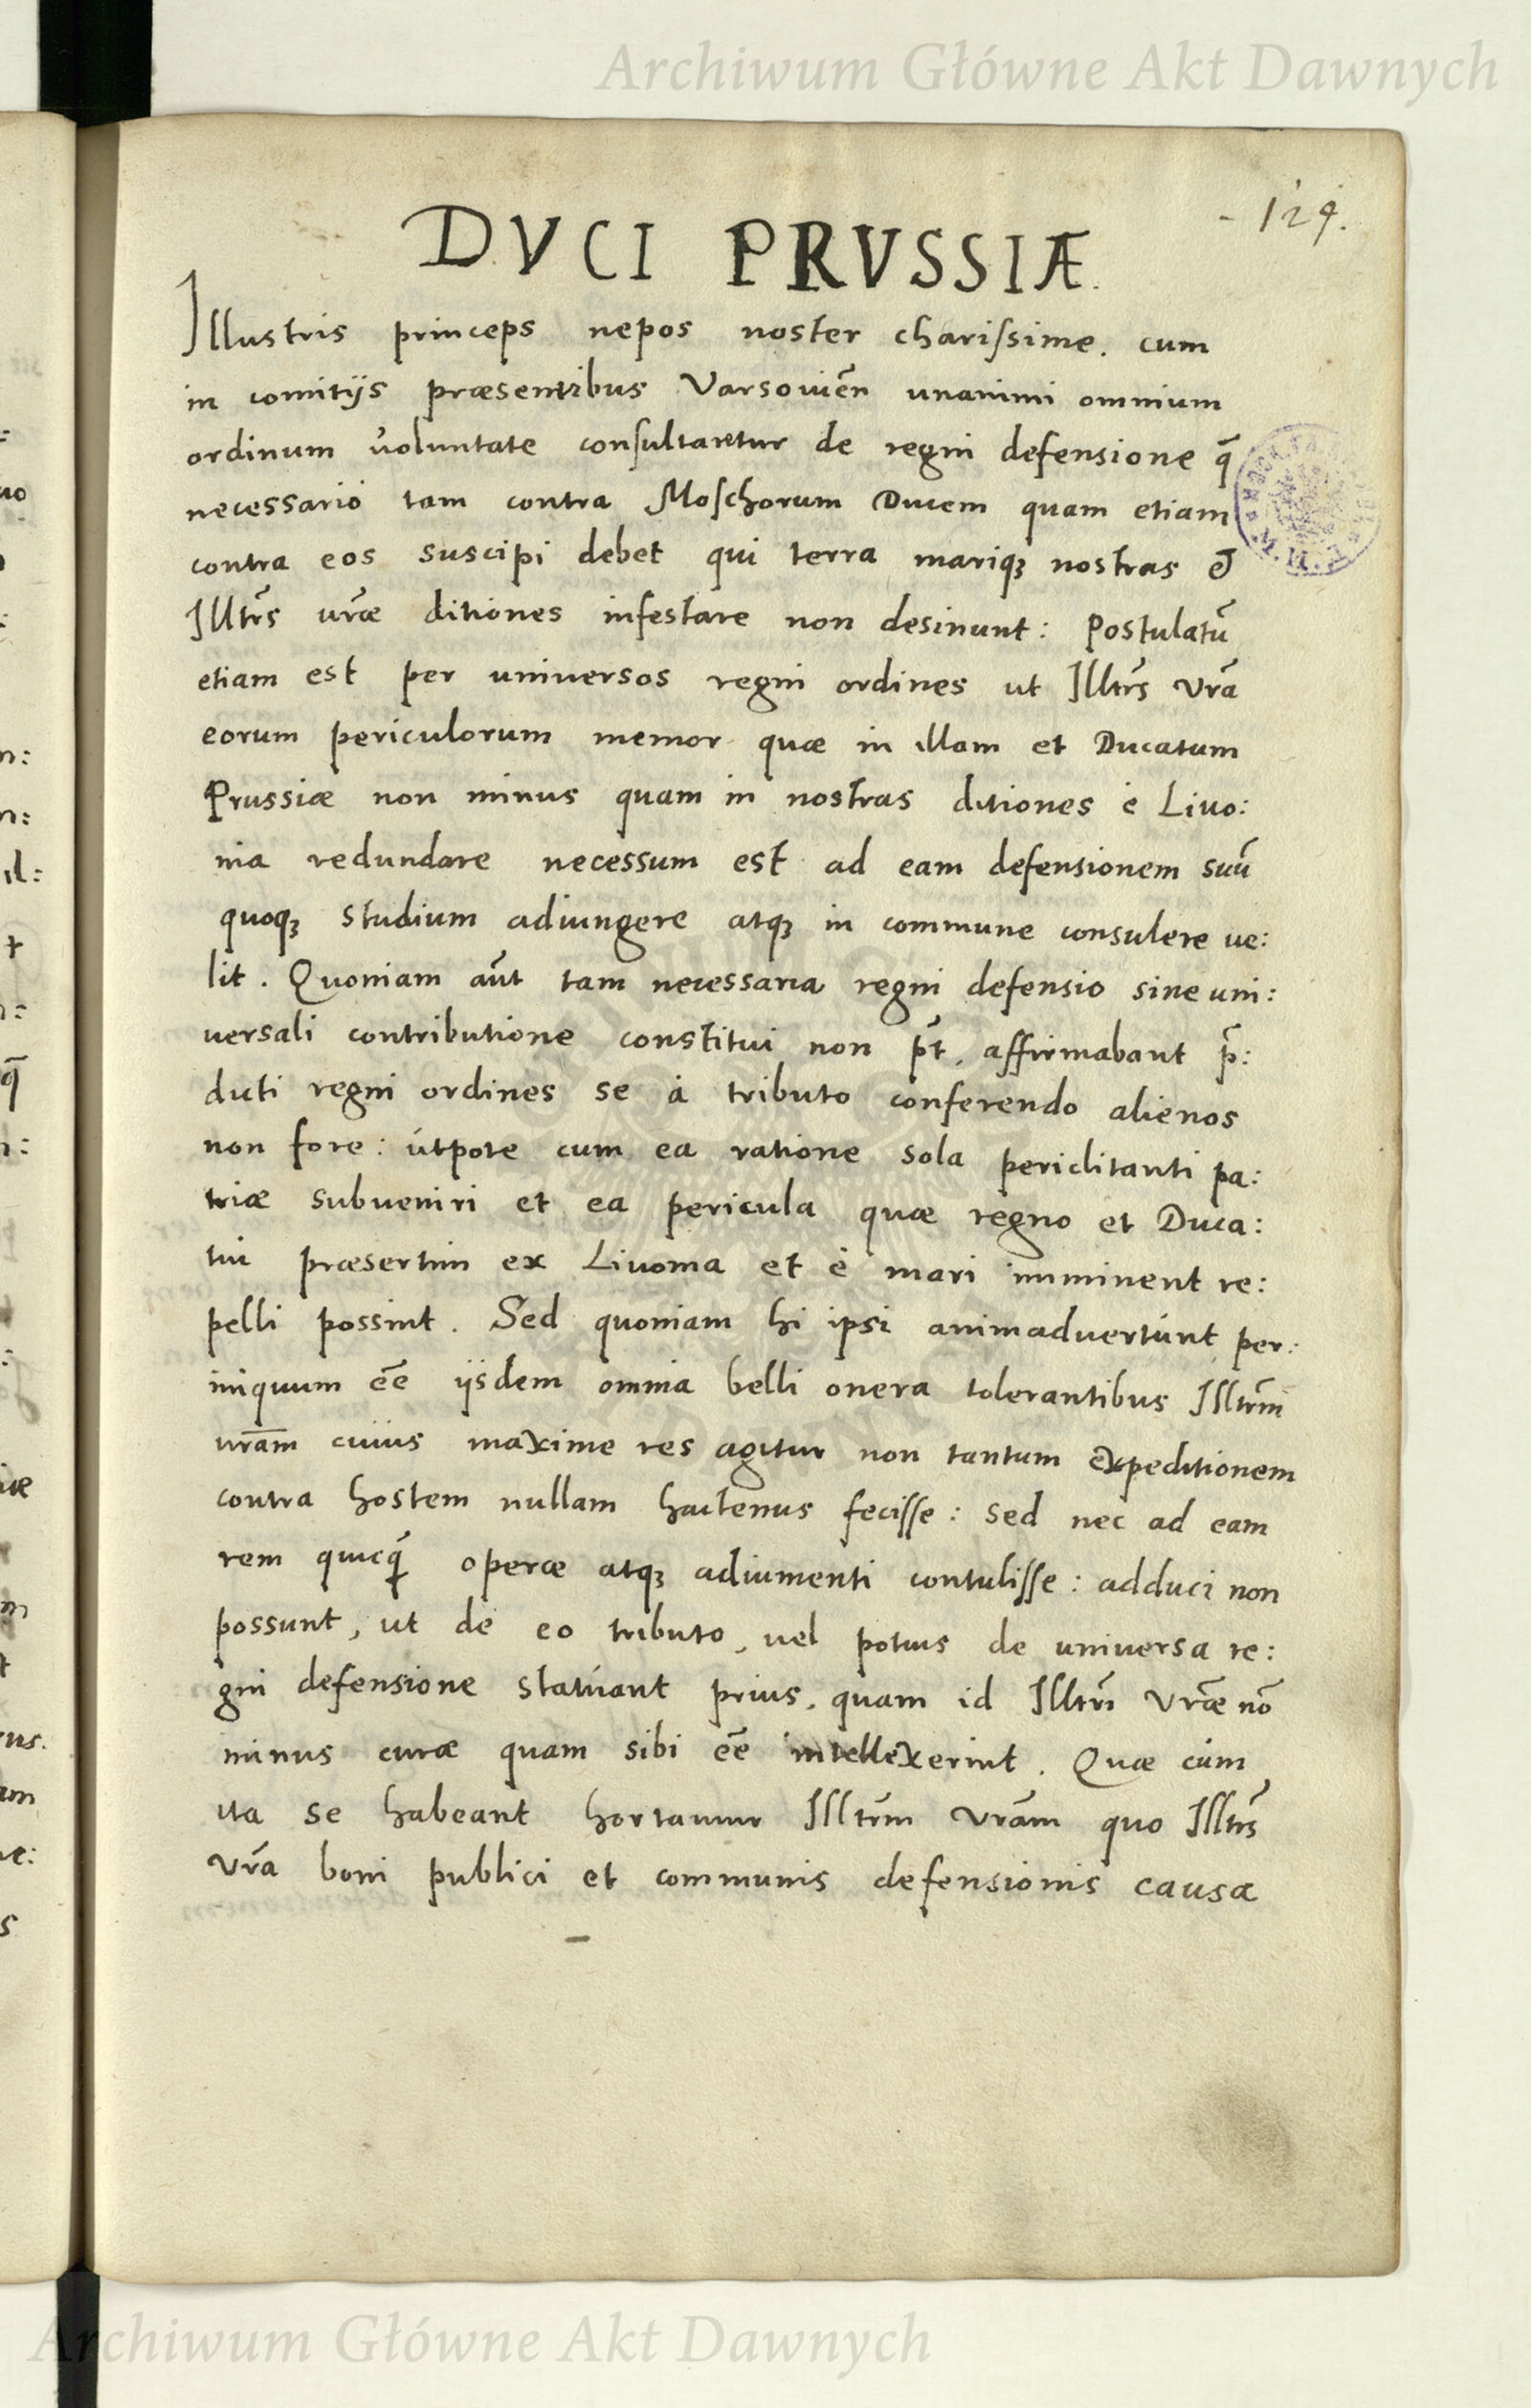 Archiwum Główne Akt Dawnych
129.
DVCI PRVSSIÆ.
Illustris princeps nepos noster charissime. cum
in comitijs præsentibus Varsovieñ unanimi omnium
ordinum voluntate consultaretur de regni defensione q̃
necessario tam contra Moschorum Ducem quam etiam
contra eos suscipi debet qui terra mariqꝫ nostras et
Illtrs̃ vrãe ditiones infestare non desinunt: Postulatũ
etiam est per universos regni ordines ut Illtrs̃ Vrã
eorum periculorum memor quæ in illam et Ducatum
Prussiæ non minus quam in nostras ditiones è Livo:
nia redundare necessum est ad eam defensionem suũ
quoqꝫ studium adiungere atqꝫ in commune consulere ve:
lit. Quoniam aũt tam necessaria regni defensio sine uni:
versali contributione constitui non p̃t, affirmabant p̃:
dicti regni ordines se à tributo conferendo alienos
non fore: útpote cum ea ratione sola periclitanti pa:
triæ subveniri et ea pericula quæ regno et Duca:
tui præsertim ex Livonia et è mari imminent re:
pelli possint. Sed quoniam hi ipsi animadvertúnt per:
iniquum eẽ ijsdem omnia belli onera tolerantibus Illtrm̃
vrãm cuius maxime res agitur non tantum expeditionem
contra hostem nullam hactenus fecisse: sed nec ad eam
rem quicq̃ operæ atqꝫ adiumenti contulisse: adduci non
possunt, ut de eo tributo, vel potius de universa re:
gni defensione statúant prius, quam id Illtrĩ Vrãe nõ
minus curæ quam sibi eẽ intellexerint. Quæ cùm
ita se habeant hortamur Illtrm̃ Vrãm quo Illtrs̃
Vrã boni publici et communis defensionis causa
Archiwum Główne Akt Dawnych